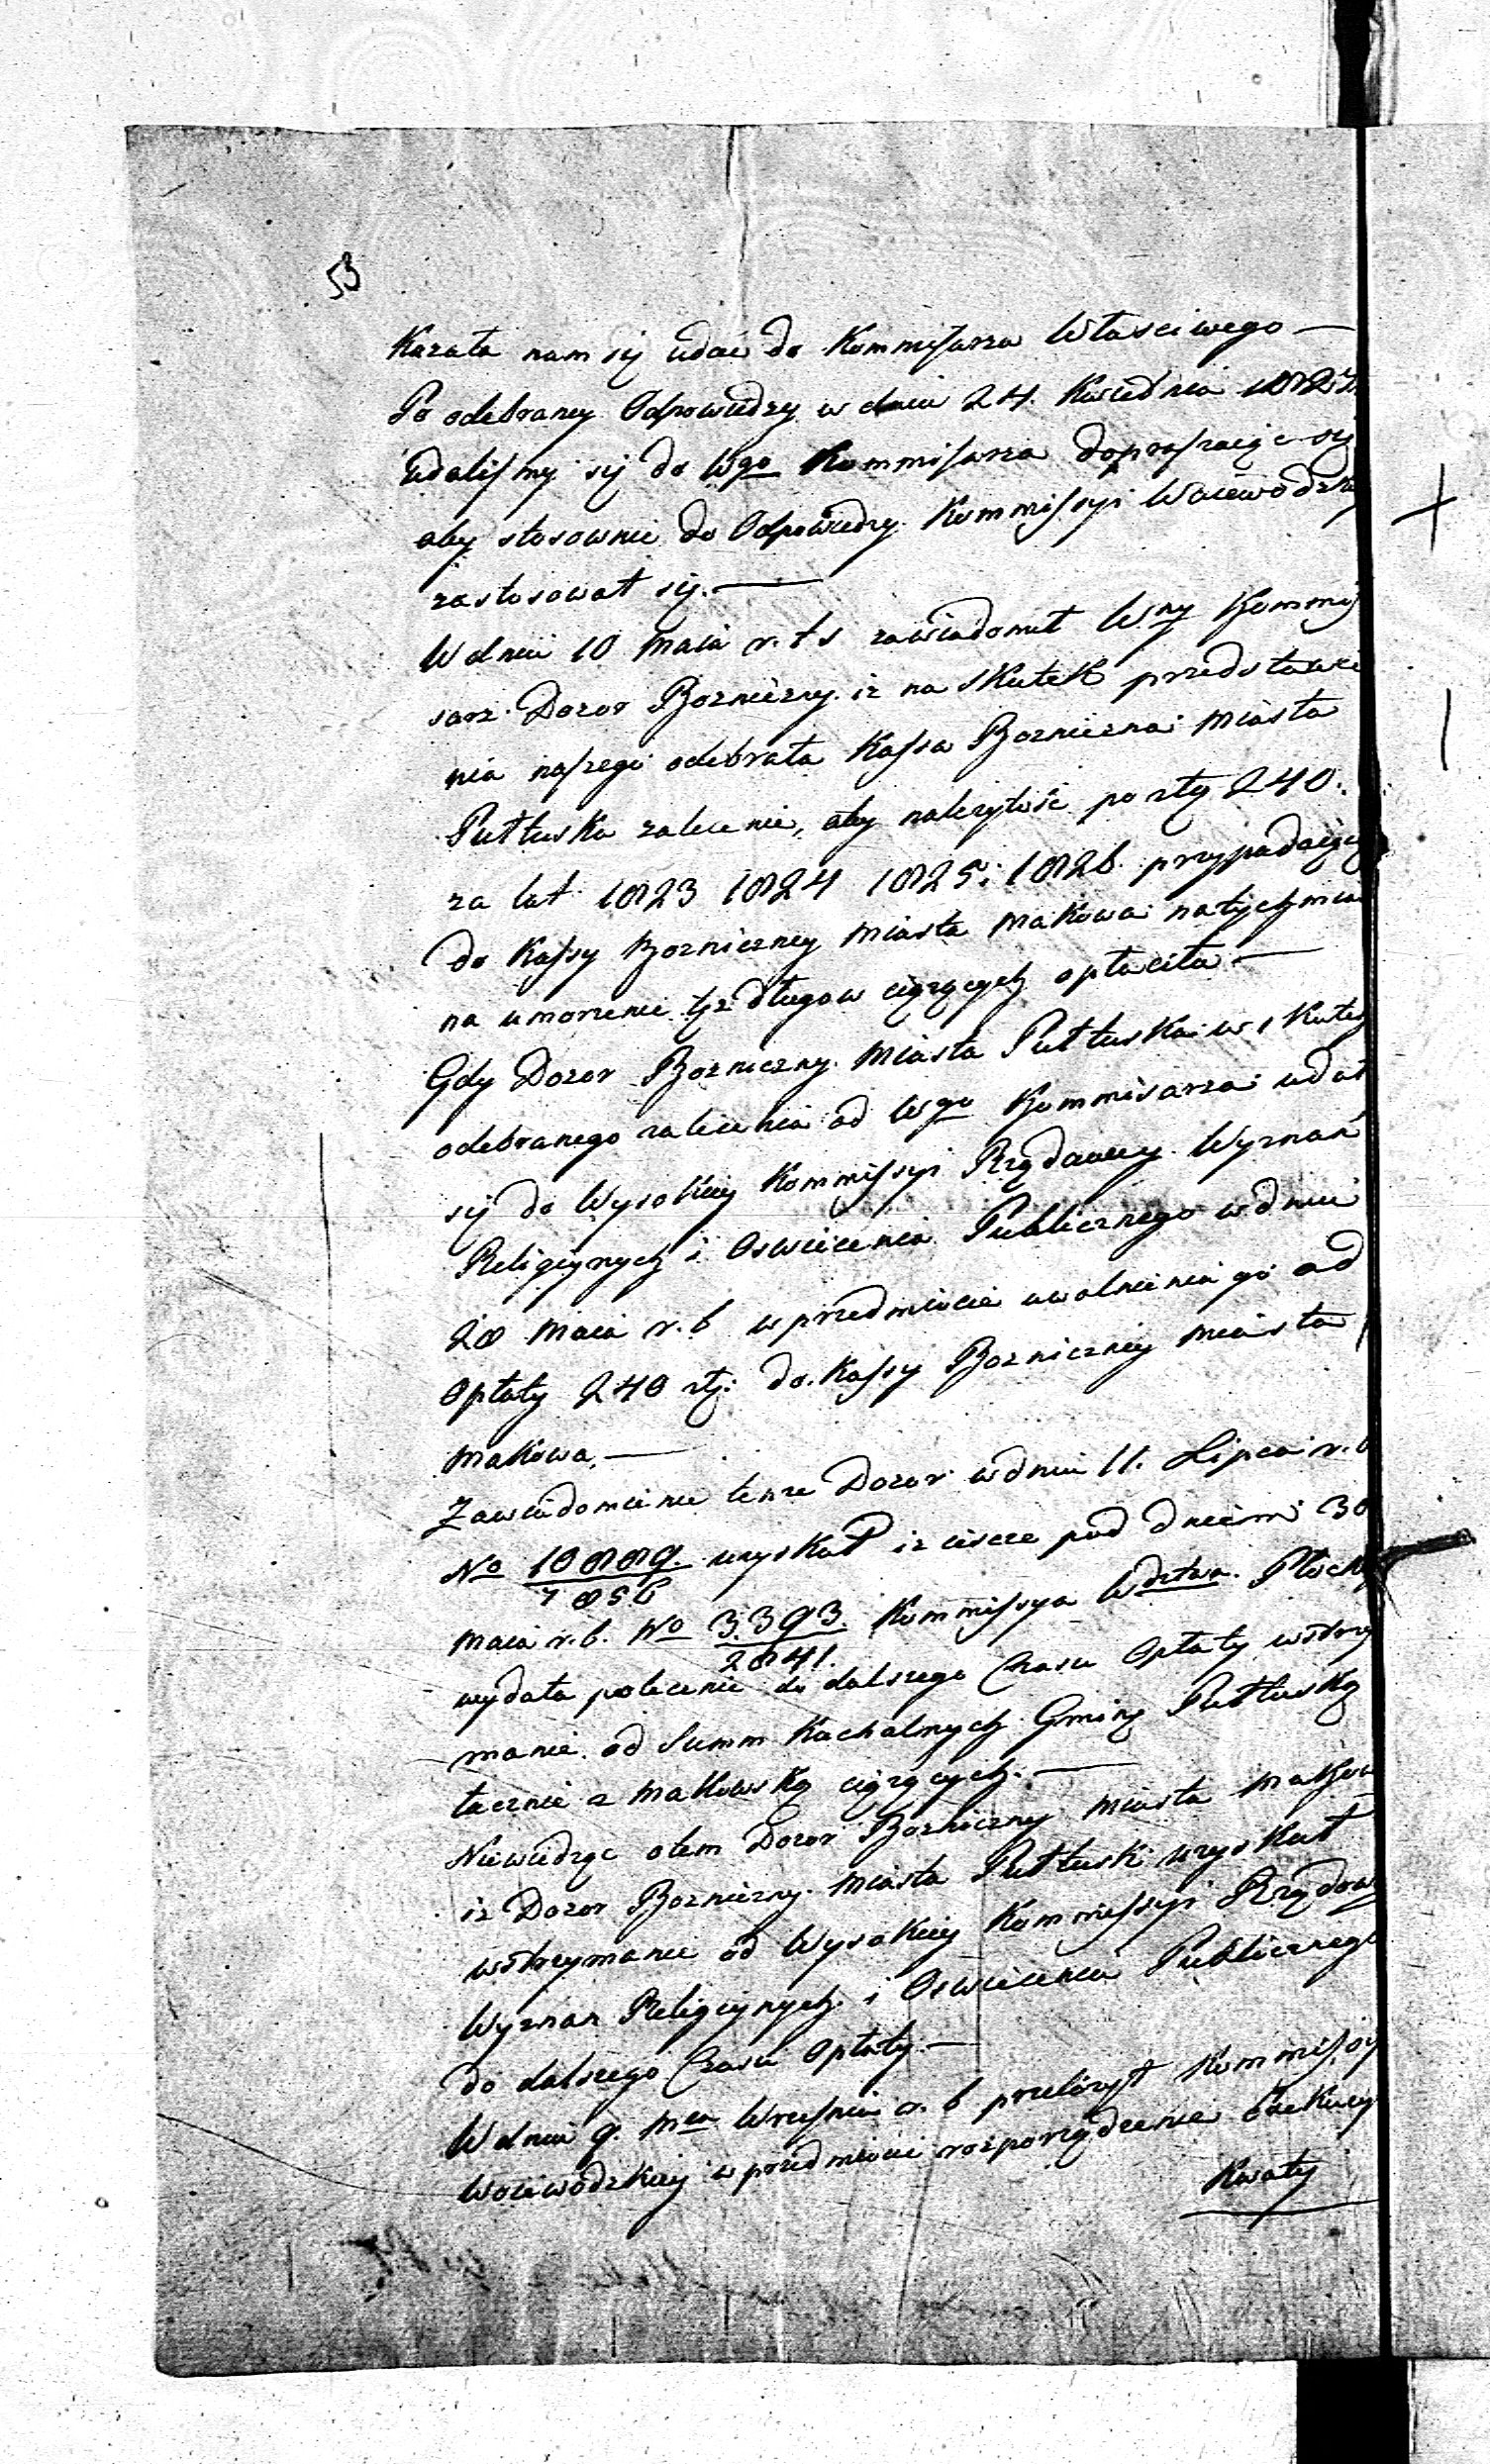 53
Kazała nam się udać do Kommissarza Własciwego —
Po odebraney Odpowiedzy w dniu 24. Kwiednia 1827.
udalismy się do Wgo Kommissarza dopraszaiąc się
aby stosownie do Odpowiedzy Kommissyi Woiewodzki
zastosował się. —
W dniu 10 Maia r. t s zawiadomił Wny Kommis
sarz Dozor Bozniczny iz na skutek przedstawie
nia naszego odebrała Kassa Boznicza Miasta
Pułtuska zalecenie, aby nalezytość po złtg 240.
za lat 1823 1824 1825 i 1826. przypadaiące
do Kassy Bozniczney Miasta Makowa natychmia
na umorzenie tyz długow ciązących opłaciła —
Gdy Dozor Bozniczny Miasta Pułtuska w skutek
odebranego zalecenia od Wgo Kommissarza udał
się do Wysokiey Kommissyi Rządowey Wyznań
Religiynych i Oswiecenia Publicznego w dniu
28 Maia r. b w przedmiocie uwolnienia go od
Opłaty 240 złt: do Kassy Bozniczney Miasta
Makowa. —
Zawiadomienie tenze Dozor w dniu 11. Lipca r. b
No 10889. uzyskał iz iescze pod dniem 30
7856
Maia r. b. No 3.393. Kommissya Wdztwa Płocki
2841.
wydała polecenie do dalszego Czasu Opłaty wstrzy
manie od Summ Kachalnych Gminy Pułtuską
łacznie z Makowską ciązących. —
Niewiedząc otem Dozor Bozniczny Miasta Makow
iz Dozor Bozniczny Miasta Pułtuski uzyskał
wstrzymanie od Wysokiey Kommissyi Rządow
Wyznan Religiynych i Oswiecenia Publicznego
do dalszego Czasu Opłaty. —
W dniu 9. Mca Wrzesnia r. b przełozył Kommissyi
Woiewodzkiey w przedmiocie rozporządzenia
Kwoty